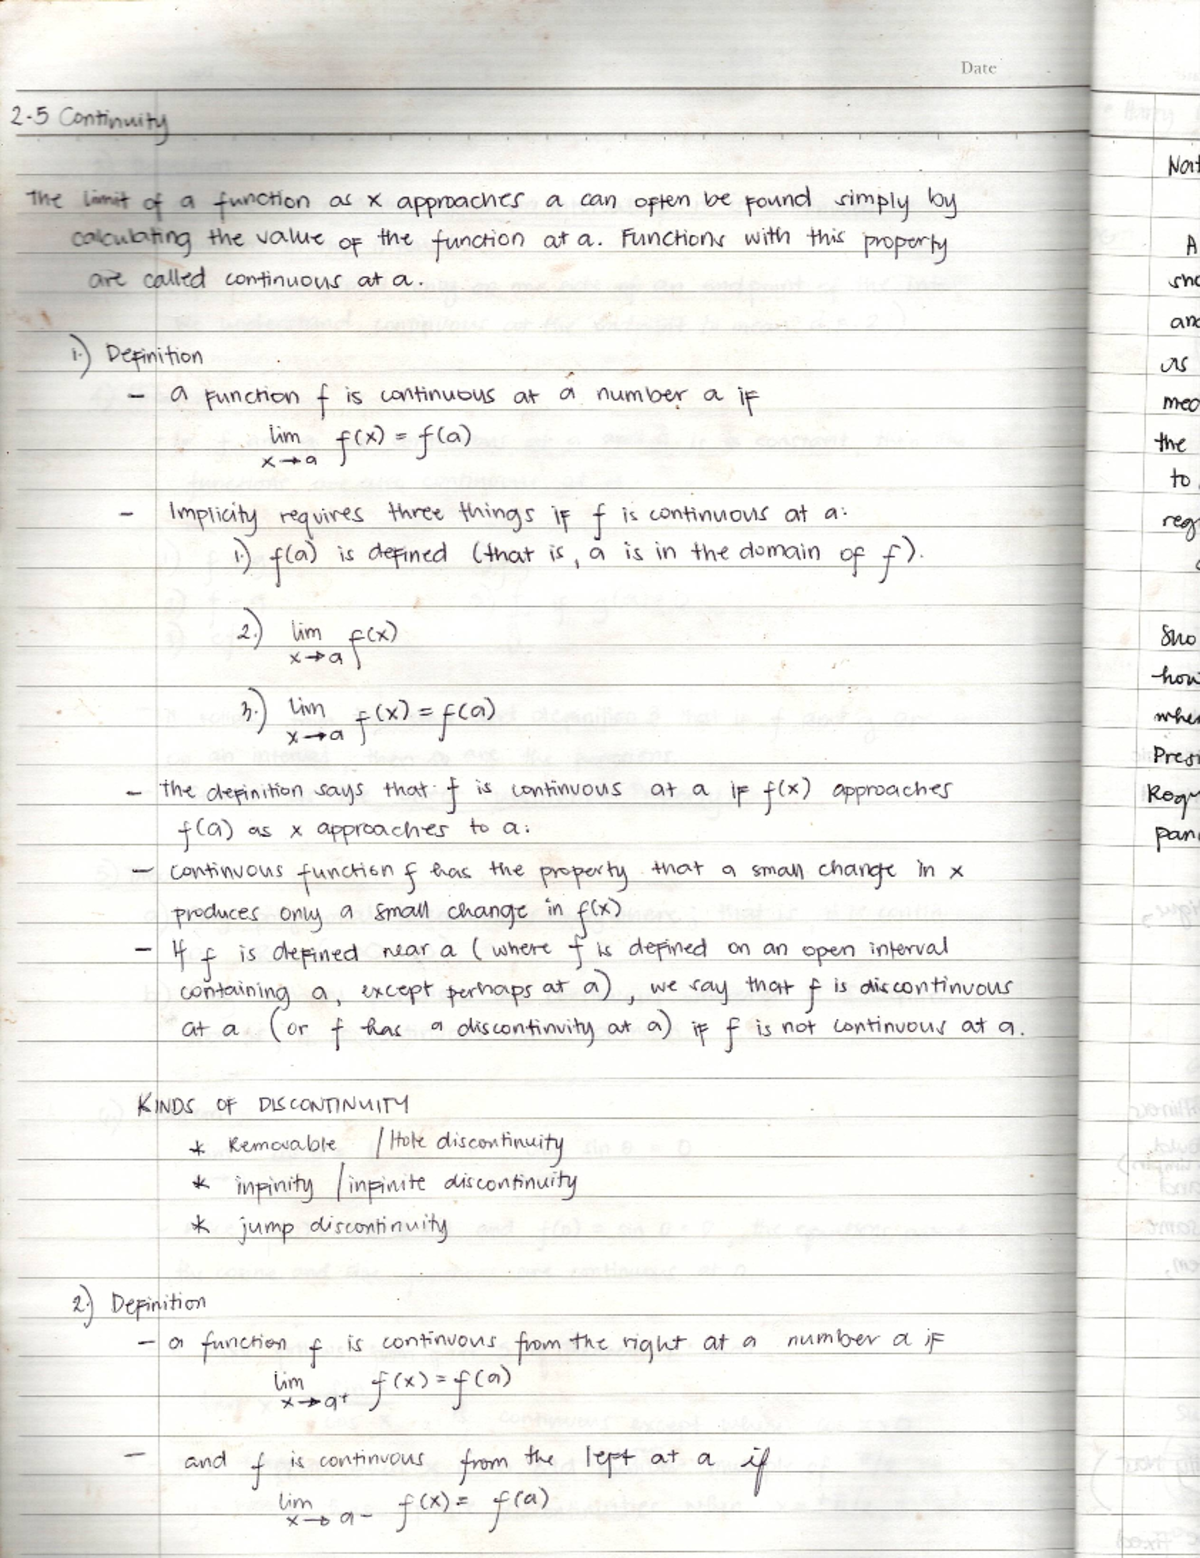 Date
2-5 Continuity
The limit of a function as x approaches a can often be found simply by
calculating the value of the function at a. Functions with this property
are called continuous at a.
1.) Definition
- a function f is continuous at a number a if
lim f(x) = f(a)
x→a
- Implicity requires three things if f is continuous at a:
1.) f(a) is defined (that is, a is in the domain of f).
2.) lim f(x)
x→a
3.) lim f(x) = f(a)
x→a
- the definition says that f is continuous at a if f(x) approaches
f(a) as x approaches to a.
- continuous function f has the property that a small change in x
produces only a small change in f(x)
- If f is defined near a (where f is defined on an open interval
containing a, except perhaps at a), we say that f is discontinuous
at a (or f has a discontinuity at a) if f is not continuous at a.
KINDS OF DISCONTINUITY
* Removable / Hole discontinuity
* infinity / infinite discontinuity
* jump discontinuity
2.) Definition
- a function f is continuous from the right at a number a if
lim f(x) = f(a)
x→a+
- and f is continuous from the left at a if
lim f(x) = f(a)
x→a-
A
and
as
the
to
how